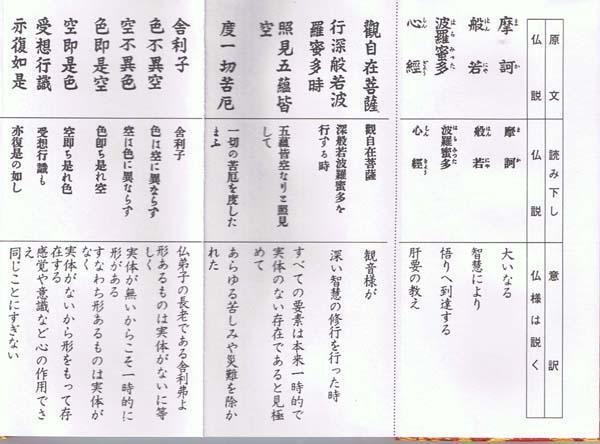 原文
仏説
摩訶
まか
般若
はんにや
波羅蜜多
はらみつた
心經
しんぎょう
觀自在菩薩
行深般若波
羅蜜多時
照見五蘊皆
空
度一切苦厄
舎利子
色不異空
空不異色
色即是空
空即是色
受想行識
亦復如是
読み下し
仏説
摩訶
まか
般若
はんにや
波羅蜜多
はらみつた
心經
しんぎょう
觀自在菩薩
深般若波羅蜜多を
行ずる時
五蘊皆空なりと照見
して
一切の苦厄を度した
まふ
舎利子
色は空に異ならず
空は色に異ならず
色即ち是れ空
空即ち是れ色
受想行識も
亦復是の如し
意訳
仏様は説く
大いなる
智慧により
悟りへ到達する
肝要の教え
観音様が
深い智慧の修行を行った時
すべての要素は本来一時的で
実体のない存在であると見極
めて
あらゆる苦しみや災難を除か
れた
仏弟子の長老である舎利弗よ
形あるものは実体がないに等
しく
実体が無いからこそ一時的に
形がある
すなわち形あるものは実体が
なく
実体がないから形をもって存
在する
感覚や意識など心の作用でさ
え
同じことにすぎない